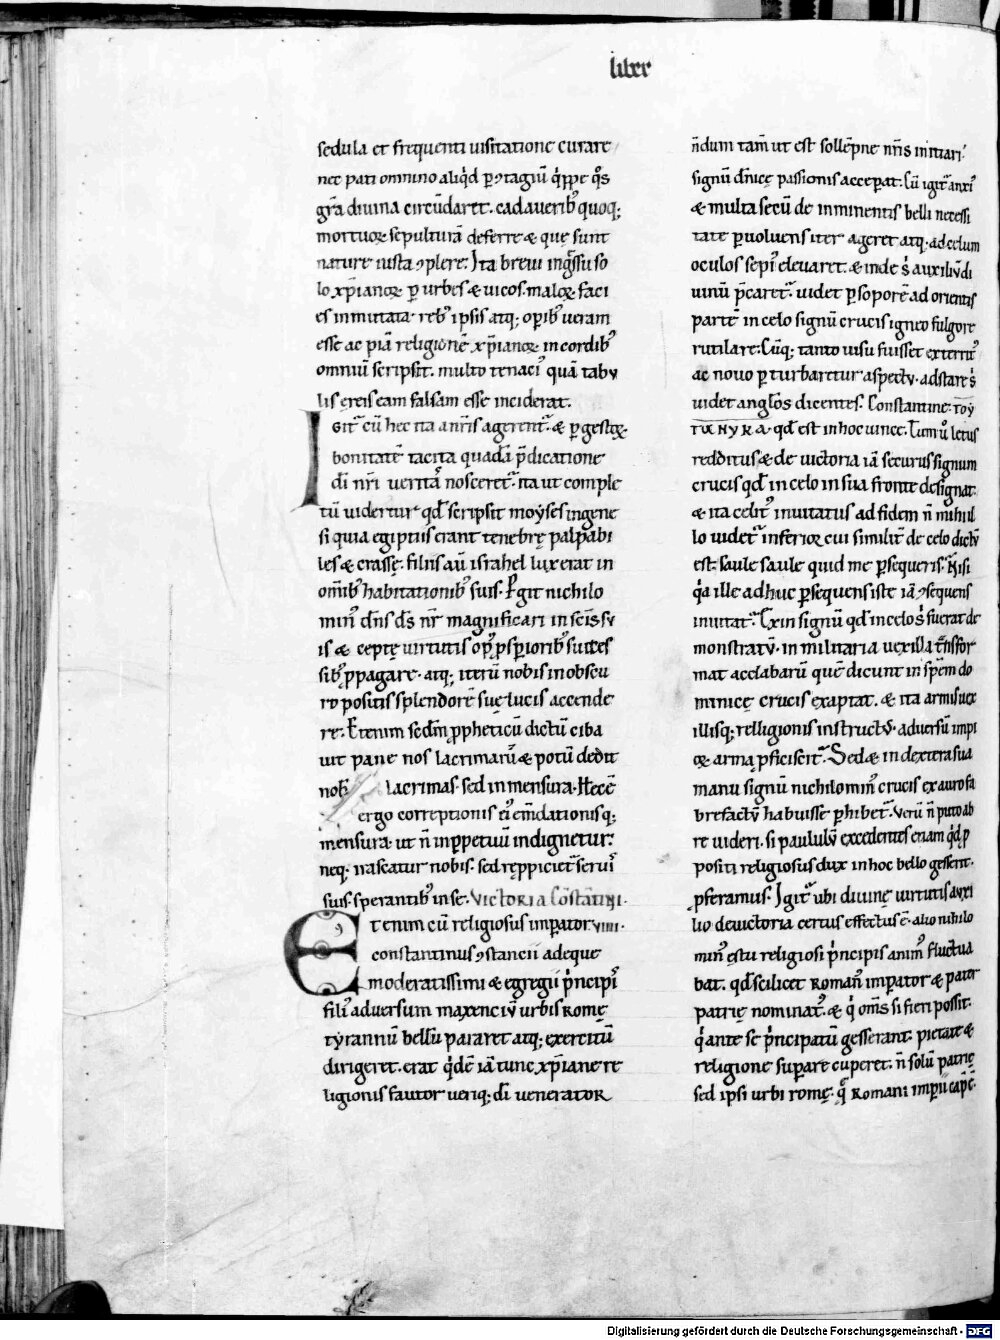 liber
sedula et frequenti uisitatione curare
nec pati omnino aliqd̄ p̱ ꝯtagiū q̄ppe q̊s
gr̄a diuina circūdaret. cadaueribꝰ quoq;
mortuoꝝ sepulturā deferre & quę sunt
nature iusta ꝯplere. Ita breui ingꝰssu so
lo xp̄ianoꝝ p̱ urbes & uicos. maloꝝ faci
es inmutata. rebꝰ ipsis atq; op̱ibꝰ ueram
esse ac piā religionē xp̄ianoꝝ in cordibꝰ
omniū scripsit. multo tenaciꝰ quā tabu
lis ęreis eam falsam esse inciderat.
Igit᷑ cū hec ita an̄ris agerent᷑. & p̱ gestoꝝ
bonitatē tacita quadā p̄dicatione
dī nr̄i ueritā nosceret᷑. ita ut comple
tū uideretur qd̄ scripsit moyses in gene
si quia egiptiis erant tenebrę palpabi
les & crassę. filiis aū israhel lux erat in
om̄ibꝰ habitationibꝰ suis. Pgit nichilo
minꝰ dn̄s ds̄ nr̄ magnificari in sc̄is su
is & ceptę uirtutis opꝰ psp̱rioribꝰ succes
sibꝰ p̱pagare. atq; iterū nobis in obscu
ro positis splendorē suę lucis accende
re. Etenim secdm̄ p̱pheticū dictū ciba
uit pane nos lacrimarū & potū dedit
nobꝰ lacrimas. sed in mensura. Hec ē
ergo correptionis eiꝰ em̄dationisq;
mensura. ut n̄ in p̱petuū indignetur.
neq; irascatur nobis. sed respiciet seruiꝰ
suis sperantibꝰ in se. Victoria Cōstātini.
Etenim cū religiosus imp̱ator viiii.
constantinus ꝯstancii adeque
moderatissimi & egregii p̊ncipiꝰ
filiꝰ aduersum maxenciū urbis Romę
tyrannū bellū pararet atq; exercitū
dirigeret. erat q̊dē iā tunc xp̄iane re
ligionis fautor ueriq; dī uenerator
n̄dum tam̄ ut est sollēpne nr̄is initiari.
signū dn̄icę passionis accep̱at. Cū igit᷑ anxiꝰ
& multa secū de inminentis belli necessi
tate p̱uoluens iter ageret atq; ad celum
oculos sepiꝰ eleuaret. & inde s̊ auxiliū di
uinū p̄caret᷑. uidet p̱ soporē ad orientis
partē in celo signū crucis igneo fulgore
rutilare. Cūq; tanto uisu fuisset exterritꝰ
ac nouo p̱turbaretur aspectu. adstare s̊
uidet anglos dicentes. Constantine. TOY
Tω NYKA. qd̄ est in hoc uince. Tum ů letus
redditus & de uictoria iā securus signum
crucis qd̄ in celo in sua fronte designat.
& ita celitꝰ inuitatus ad fidem n̄ mihi il
lo uidet᷑ inferior. cui similit̄ de celo dictū
est saule saule quid me p̱sequeris. Nisi
q̊a ille adhuc p̱sequens iste iā ꝯsequens
inuitat᷑. Exin signū qd̄ in celo s̊ fuerat de
monstratū. in militaria uexilla t̄nsfor
mat ac clabarū quē dicunt in spēm do
minicę crucis exaptat. & ita armis uex
illisq; relligionis instructꝰ. aduersū impi
oꝝ arma pficiscit᷑. Sed & in dextera sua
manu signū nichilominꝰ crucis ex auro fa
brefactū habuisse p̱hibet᷑. Verū n̄ puto ab
re uideri. si paululū excedentes etiam q̊d p̱
positi religiosus dux in hoc bello gesserit.
pferamus. Igit᷑ ubi diuinę uirtutis auxi
lio de uictoria certus effectus ē. alio nichilo
minꝰ ęstu religiosi p̊ncipis animꝰ fluctua
bat. qd̄ scilicet Romanꝰ imp̱ator & pater
patrię nominatꝰ. & q̊ om̄s si fieri possit.
q̊ ante se p̊ncipatū gesserant. pietate &
religione sup̱are cuperet. n̄ solū patrię
sed ipsi urbi romę. q̨ Romani imp̱ii cap̄ ē.
Digitalisierung gefördert durch die Deutsche Forschungsgemeinschaft - DFG